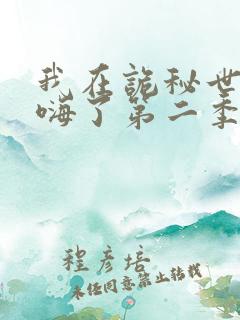 我在詭秘世
嗨了第二季
程彥培
未经同意禁止转载